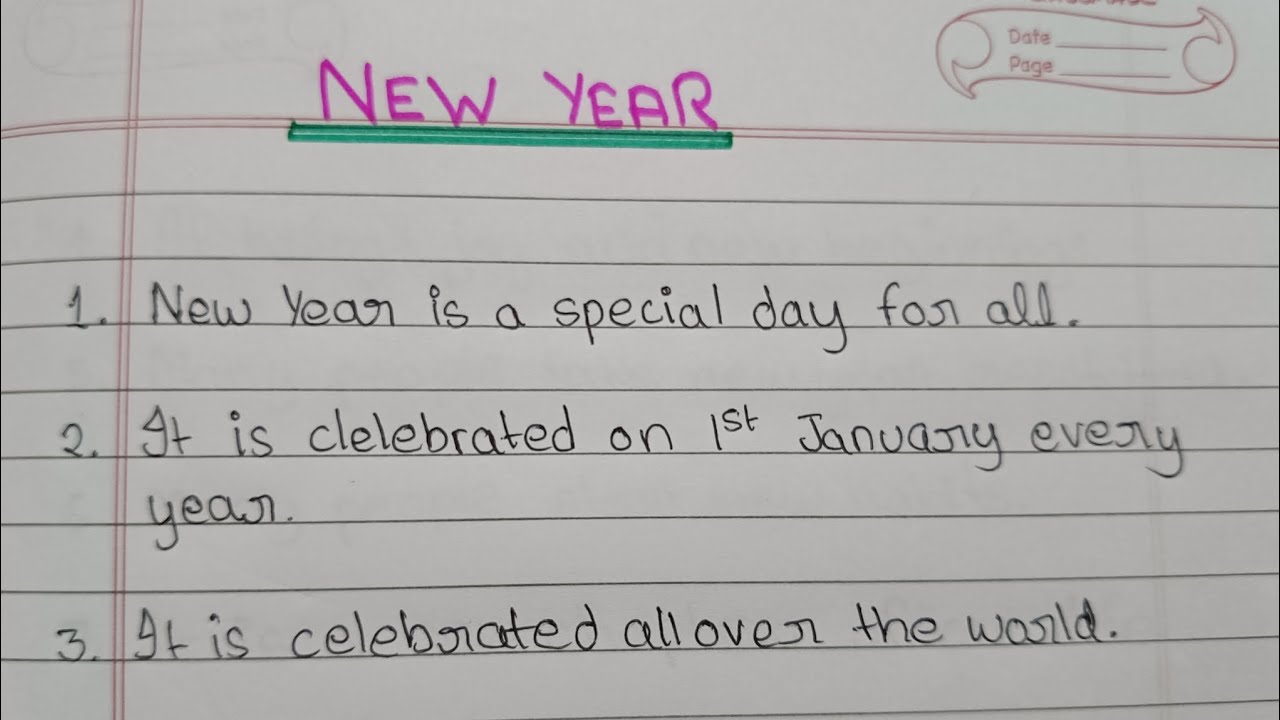 Date
Page
NEW YEAR
1. New Year is a special day for all.
2. It is clelebrated on 1st January every
year.
3. It is celebrated all over the world.